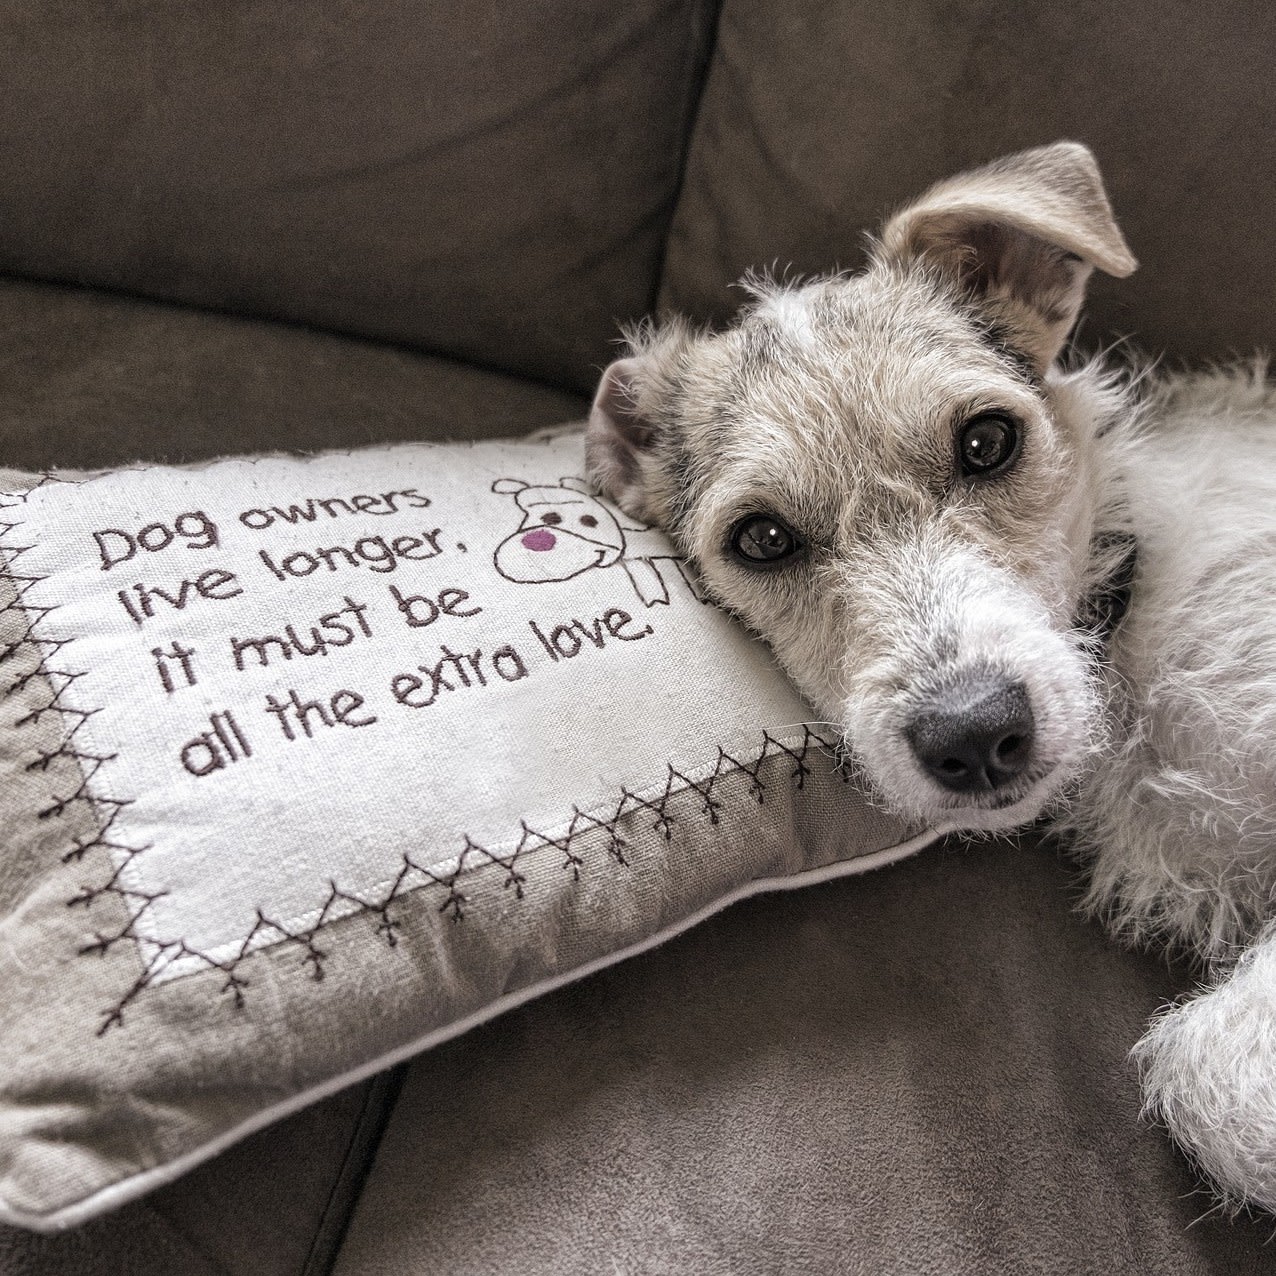 Dog owners
live longer,
it must be
all the extra love.